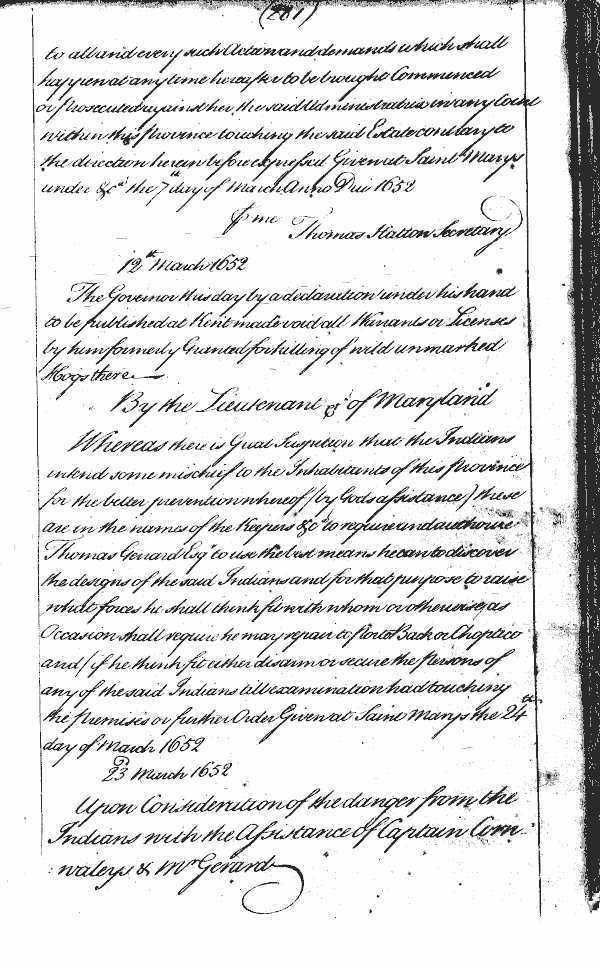 (281)
to all and every such Action and demands which shall
happen at any time hereafter to be brought Commenced
or prosecuted against her the said Administratrix in any Court
within this Province touching the said Estate contrary to
the direction herein before expressed Given at Saint Marys
under &ca the 7th day of March Anno Dni 1652
P me
Thomas Hatton Secretary
12th March 1652
The Governor this day by a declaration under his hand
to be published at Kent made void all Warrants or Licenses
by him formerly Granted for killing of wild unmarked
Hogs there
By the Lieutenant &c of Maryland
Whereas there is Great Suspition that the Indians
intend some mischief to the Inhabitants of this Province
for the better prevention whereof (by Gods assistance) these
are in the names of the Keepers &ca to require and authorise
Thomas Gerrard Esqr to use the best means he can to discover
the designs of the said Indians and for that purpose to raise
what forces he shall think fit with whom or otherwise as
Occasion shall require he may repair to Porto Back or Choptico
and (if he think fit either disarm or secure the Persons of
any of the said Indians till examination had touching
the Premises or further Order Given at Saint Marys the 24th
day of March 1652
23 March 1652
Upon Consideration of the danger from the
Indians with the Assistance of Captain Corn
waleys & Mr Gerard